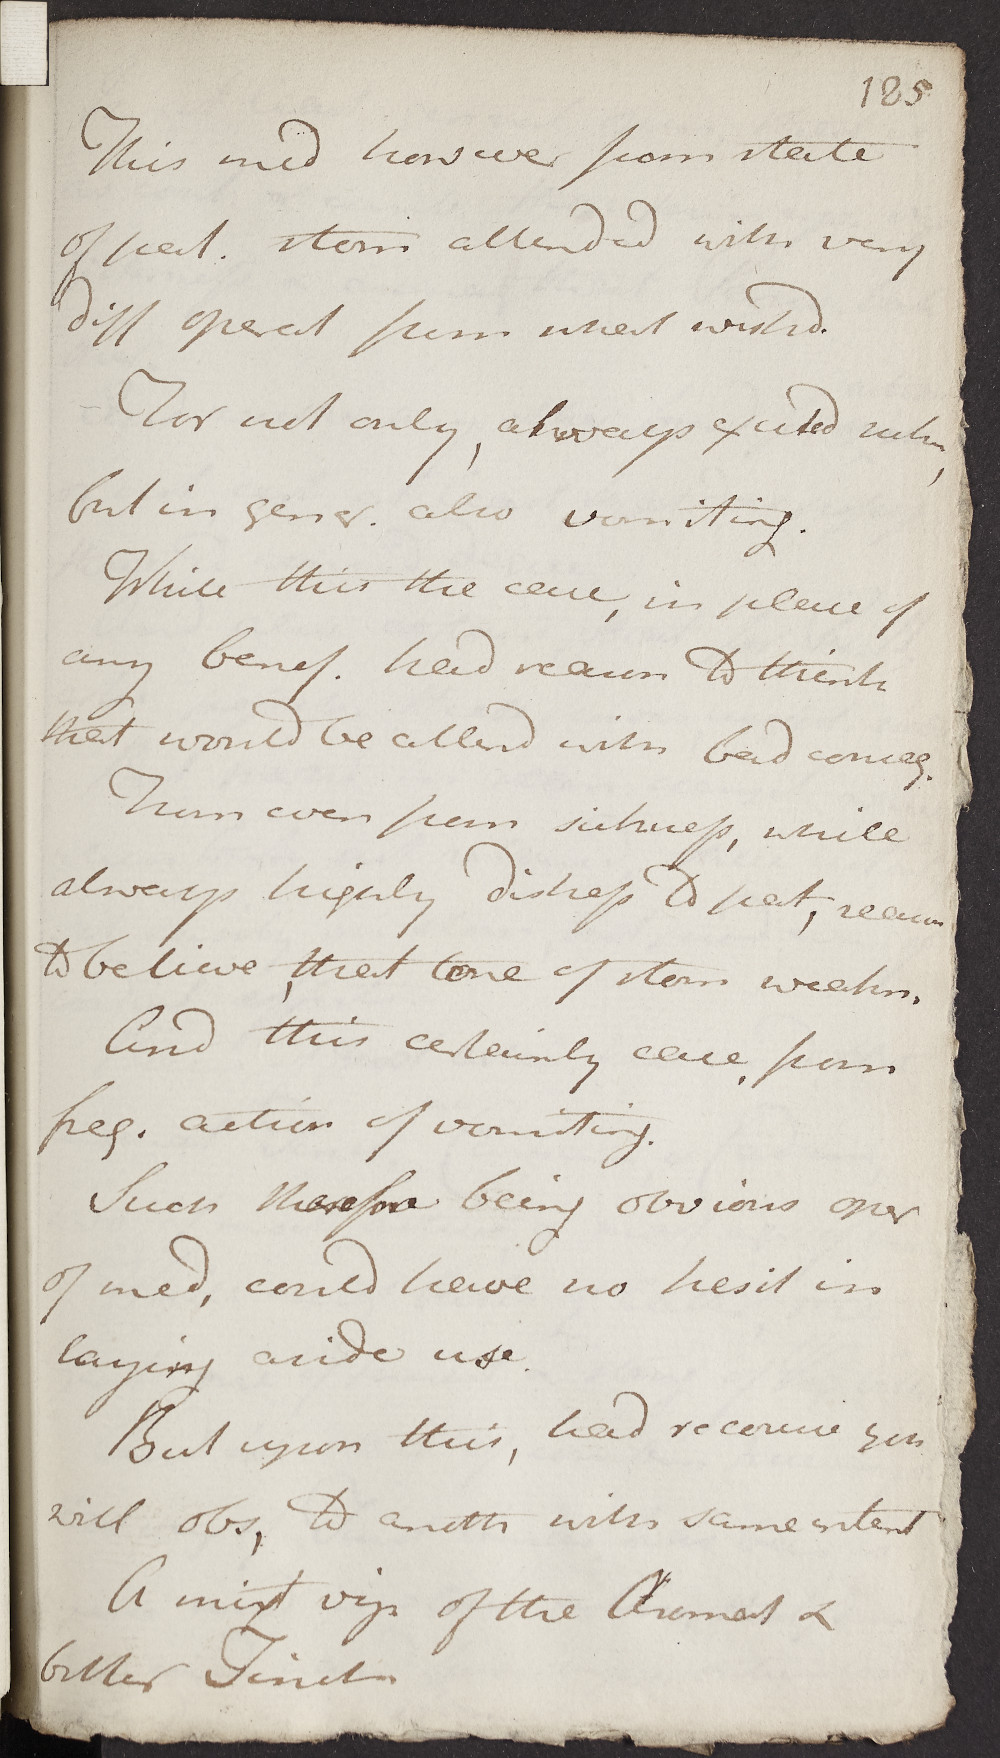 185
This med however from state
of pat. stom attended with very
diff operat from what wishd.
For not only, always excited
but in gener. also vomiting.
While this the case, in place of
any benef. had reason to think
that would be attend with bad conseq.
From even from sickness, while
always highly distress to pat, reason
to believe, that tone of stom weakn.
And this certainly case, from
freq. action of vomiting.
Such therefore being obvious oper
of med, could have no hesit in
laying aside use.
But upon this, had recourse you
will obs, to anoth with same intent
A mixt viz of the Aromat &
bitter Tinct